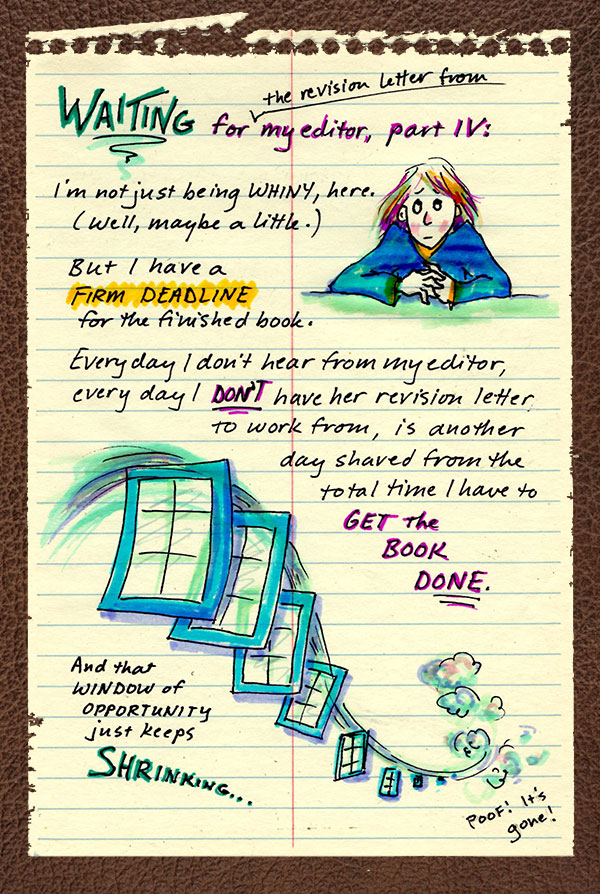 WAITING for the revision letter from my editor, part IV:
I'm not just being WHINY, here.
(Well, maybe a little.)
But I have a
FIRM DEADLINE
for the finished book.
Every day I don't hear from my editor,
every day I DON'T have her revision letter
to work from, is another
day shaved from the
total time I have to
GET the
BOOK
DONE.
And that
WINDOW of
OPPORTUNITY
just keeps
SHRINKING...
POOF! It's
gone!